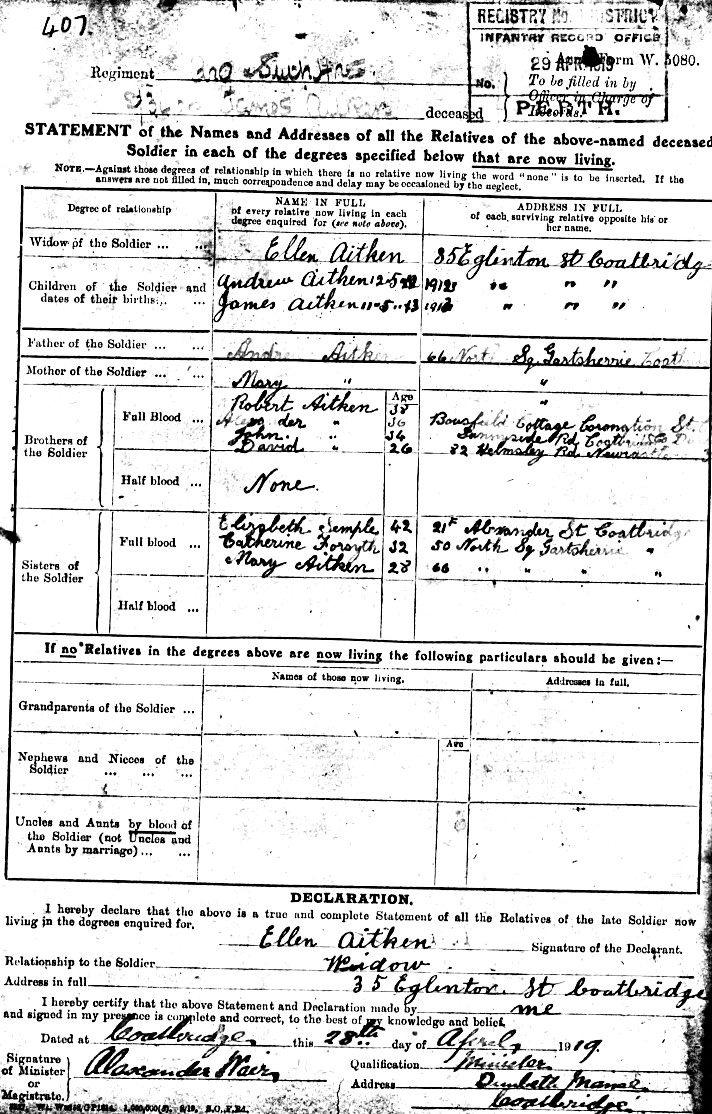 407.
REGISTRY No. DISTRICT
INFANTRY RECORD OFFICE
29 APR 1919
Army Form W. 5080.
No.
To be filled in by
Officer in Charge of
Records.
PERTH.
Regiment 2nd
James Aitken deceased
STATEMENT of the Names and Addresses of all the Relatives of the above-named deceased
Soldier in each of the degrees specified below that are now living.
NOTE.—Against those degrees of relationship in which there is no relative now living the word "none" is to be inserted. If the
answers are not filled in, much correspondence and delay may be occasioned by the neglect.
Degree of relationship
NAME IN FULL
of every relative now living in each
degree enquired for (see note above).
ADDRESS IN FULL
of each surviving relative opposite his or
her name.
Widow of the Soldier ... ... Ellen Aitken 35 Eglinton St Coatbridg
Children of the Soldier and
dates of their births... ...
Andrew Aitken 12-5- 1912 " " "
James Aitken 11-5-13 1913 " " "
Father of the Soldier ... ... Andr Aitken 66 North Sq Gartsherrie Coat
Mother of the Soldier ... ... Mary " "
Age
Brothers of
the Soldier
Full Blood ...
Robert Aitken 38 "
Alexander " 36 Bousfield Cottage Coronation St.
John. " 34 Sunnyside Rd Coatbridge
David " 26 32 Helmsley Rd Newcastle
Half blood ... None.
Sisters of
the Soldier
Full blood ...
Elizabeth Semple 42 21 Alexander St Coatbridge
Catherine Forsyth 32 50 North Sq Gartsherrie "
Mary Aitken 28 66 " " " "
Half blood ...
If no Relatives in the degrees above are now living the following particulars should be given:—
Names of those now living.
Addresses in full.
Grandparents of the Soldier ...
Age
Nephews and Nieces of the
Soldier ... ... ...
Uncles and Aunts by blood of
the Soldier (not Uncles and
Aunts by marriage)... ...
DECLARATION.
I hereby declare that the above is a true and complete Statement of all the Relatives of the late Soldier now
living in the degrees enquired for.
Ellen Aitken Signature of the Declarant.
Relationship to the Soldier Widow
Address in full 35 Eglinton St Coatbridge
I hereby certify that the above Statement and Declaration made by me
and signed in my presence is complete and correct, to the best of my knowledge and belief.
Dated at Coatbridge, this 28th day of April, 1919.
Signature
of Minister
or
Magistrate.
Alexander Weir,
Qualification Minister
Address Dunbeth Manse,
Coatbridge